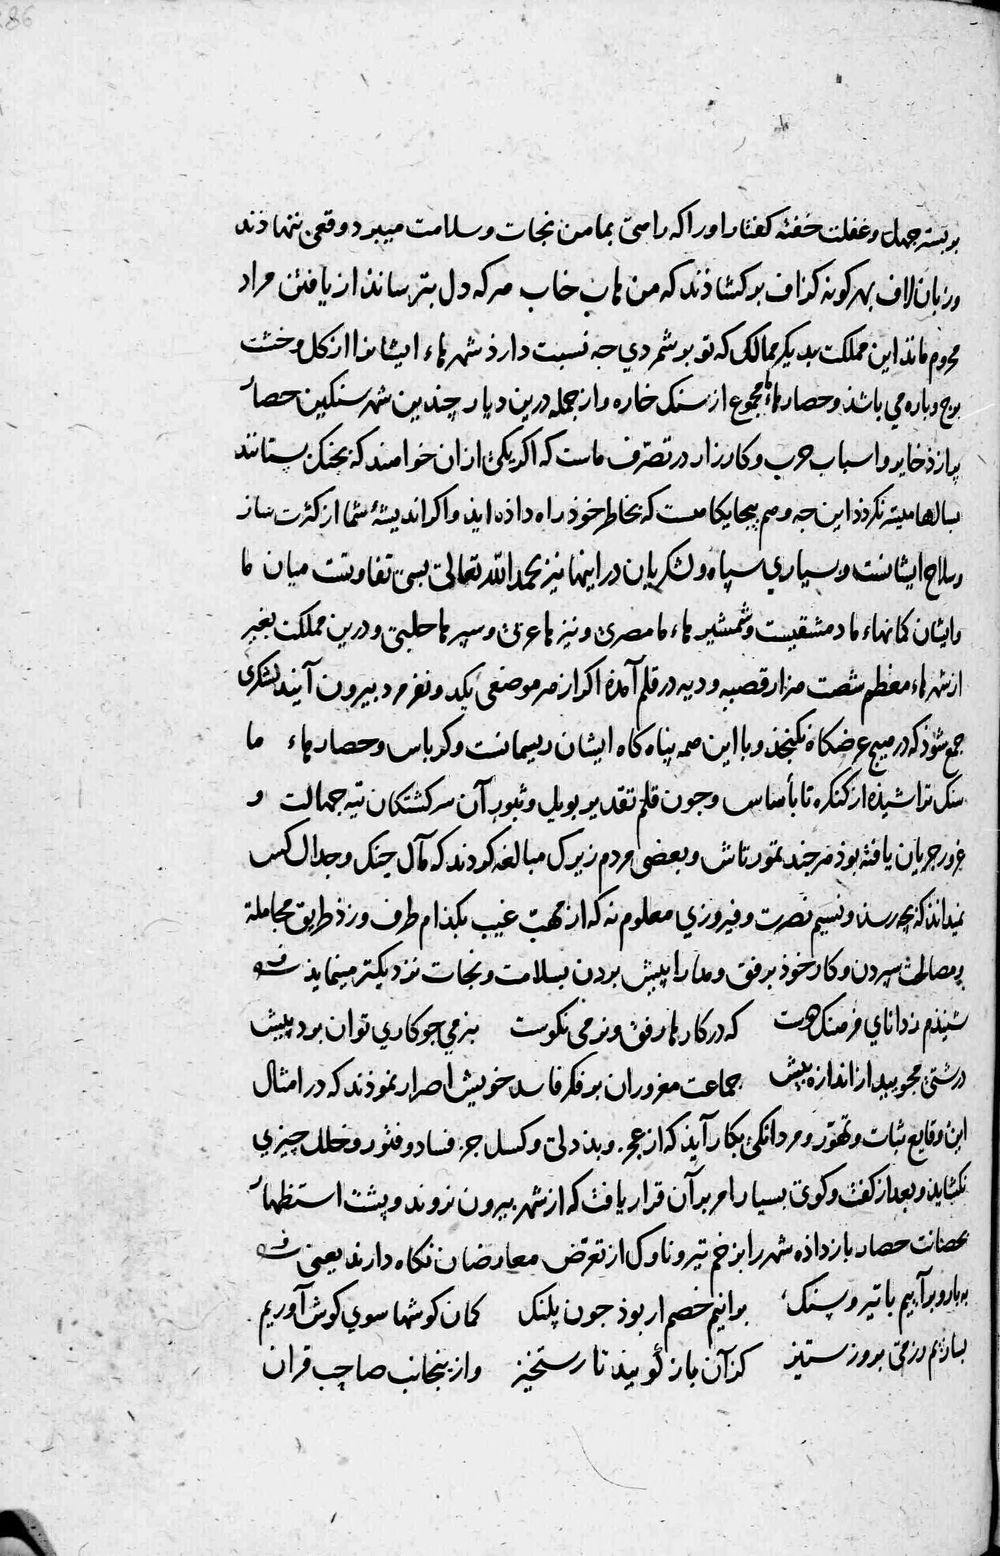 286
بر بستر جهل و غفلت خفته گفتار او را که راستی بمامن نجات و سلامت میبرد وقعی ننهاذند
و زبان لاف بهر کونه کزاف بر کشاذند که من هاب خاب هر که دل بترساند از یافتن مراد
محروم ماند این مملکت بدیکر ممالک که تو بر شمردی جه نسبت دارذ شهرهاء ایشانرا از کل و خشت
برج و باره می باشد و حصارهاء مجموع از سنک خاره و از جمله درین دیار چندین شهر سنکین حصار
پر از ذخایر و اسباب حرب و کارزار در تصرف ماست که اکر یکی از ان خواهند که بجنک بستانند
بسالها میسر نکردذ این جه وهم بیجایکاهست که بخاطر خوذ راه داذه ایذ و اکر اندیشهٔ شما از کثرت ساز
و سلاح ایشانست و بسیاری سپاه و لشکریان در اینها نیز بحمد الله تعالی بسی تفاوتست میان ما
و ایشان کمانهاء ما دمشقیست و شمشیرهاء ما مصری و نیزها عربی و سپرها حلبی و درین مملکت بغیر
از شهرهاء معظم شصت هزار قصبه و دیه در قلم آمذه اکر از هر موضعی یکدو نفر مرد بیرون آیند لشکری
جمع شوذ که در هیچ عرضکاه نکنجد و با این همه پناه کاه ایشان ریسمانست و کرباس و حصارهاء ما
سنک تراشیذه از کنکره تا باساس و جون قلم تقدیر بویل و ثبور آن سرکشتکان تیه جهالت و
غرور جریان یافته بوذ هر چند تمورتاش و بعضی مردم زیرک مبالغه کردند که مآل جنک و جدال کس
نمیداند که بچه رسذ و نسیم نصرت و فیروزی معلوم نه که از مهب غیب بکذام طرف وزذ طریق مجامله
و مصالحت سپردن و کار خوذ برفق و مدارا پیش بردن بسلامت و نجات نزدیکتر مینماید
شنیذم ز دانای فرهنک دوست که در کارها رفق و نرمی نکوست بنرمی جو کاری توان برد پیش
درشتی مجویید از اندازه بیش جماعت مغروران بر فکر فاسد خویش اصرار نموذند که در امثال
این وقایع ثبات و تهور و مردانکی بکار آیذ که از عجز و بددلی و کسل جز فساد و فتور و خلل چیزی
نکشاید و بعد از کفت و کوی بسیار امر بر آن قرار یافت که از شهر بیرون نروند و پشت استظهار
بحصانت حصار باز داذه شهر را بزخم تیر و ناوک از تعرض معارضان نکاه دارند یعنی
به بارو بر آییم با تیر و سنک برانیم خصم ار بوذ جون پلنک کمان کوشها سوی کوش آوریم
بسازیم رزمی بروز ستیز کز آن باز کویند تا رستخیز و از ینجانب صاحب قران